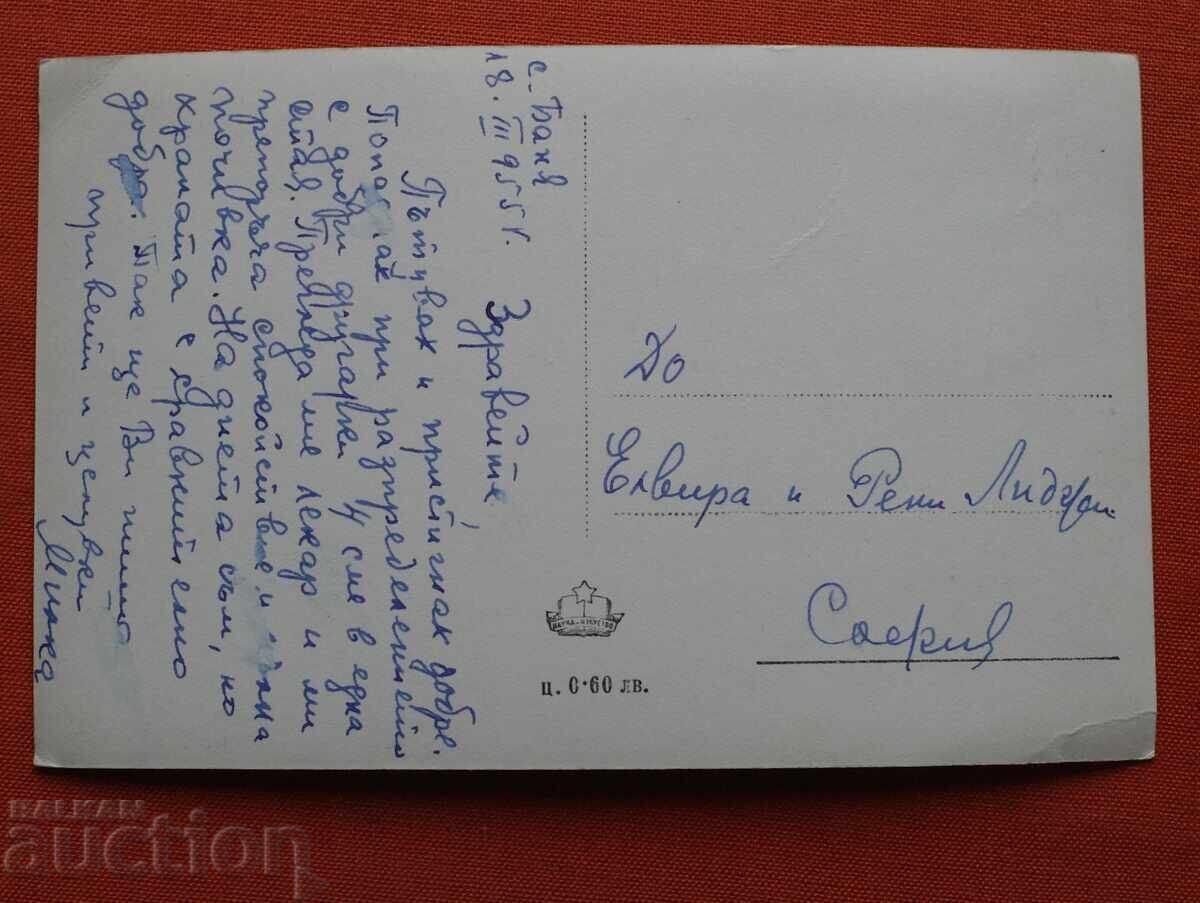 с. Баня
18.III 955 г.
Здравейте,
Пътувах и пристигнах добре.
Попаднах при разпределението
с добри другарки 4 сме в една
стая. Прегледа ме лекар и ми
препоръча спокойствие и
почивка. На диета съм, но
храната е сравнително
добра. Пак ще Ви пиша
привети и целувки
До
Елвира и Рени
София
НАУКА И ИЗКУСТВО
ц. 0·60 лв.
BALKAN
auction